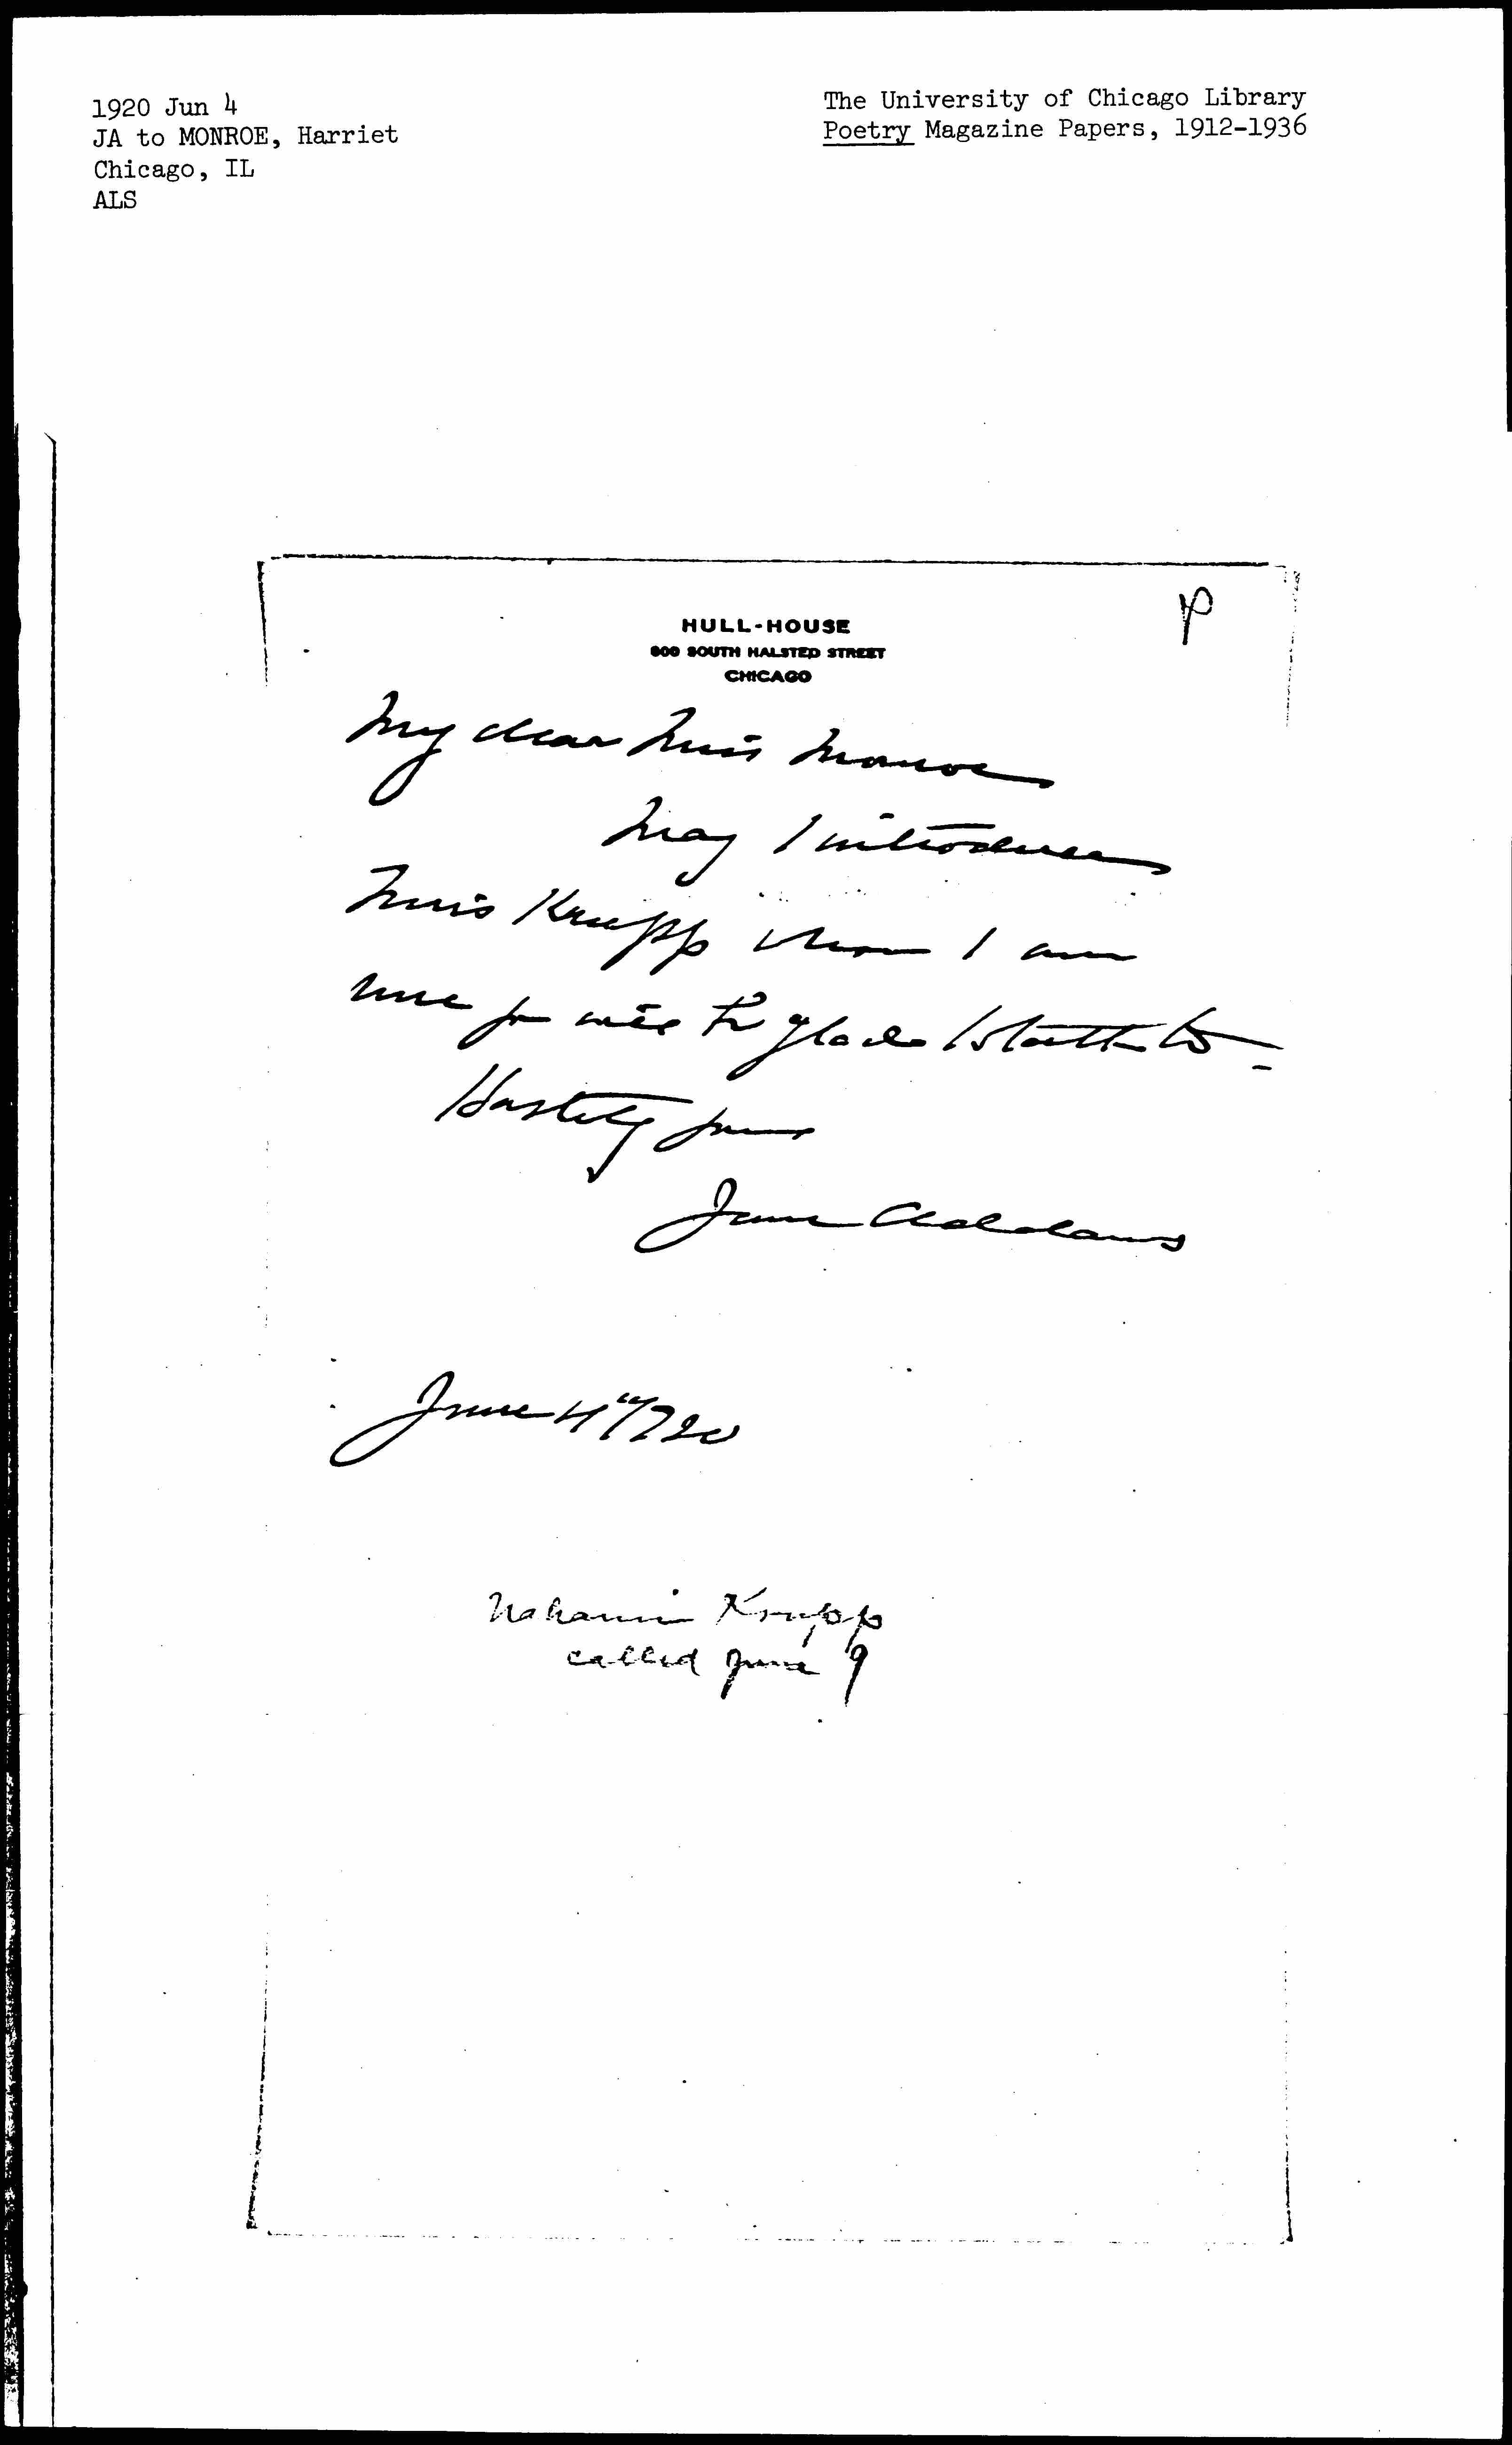 1920 Jun 4
JA to MONROE, Harriet
Chicago, IL
ALS
The University of Chicago Library
Poetry Magazine Papers, 1912-1936
P
HULL-HOUSE
800 SOUTH HALSTED STREET
CHICAGO
My dear Miss Monroe
May I introduce
Miss Krupp whom I am
sure you will be glad to talk to –
Hastily yours
Jane Addams
June 4" 1920
Krupp
called June 9